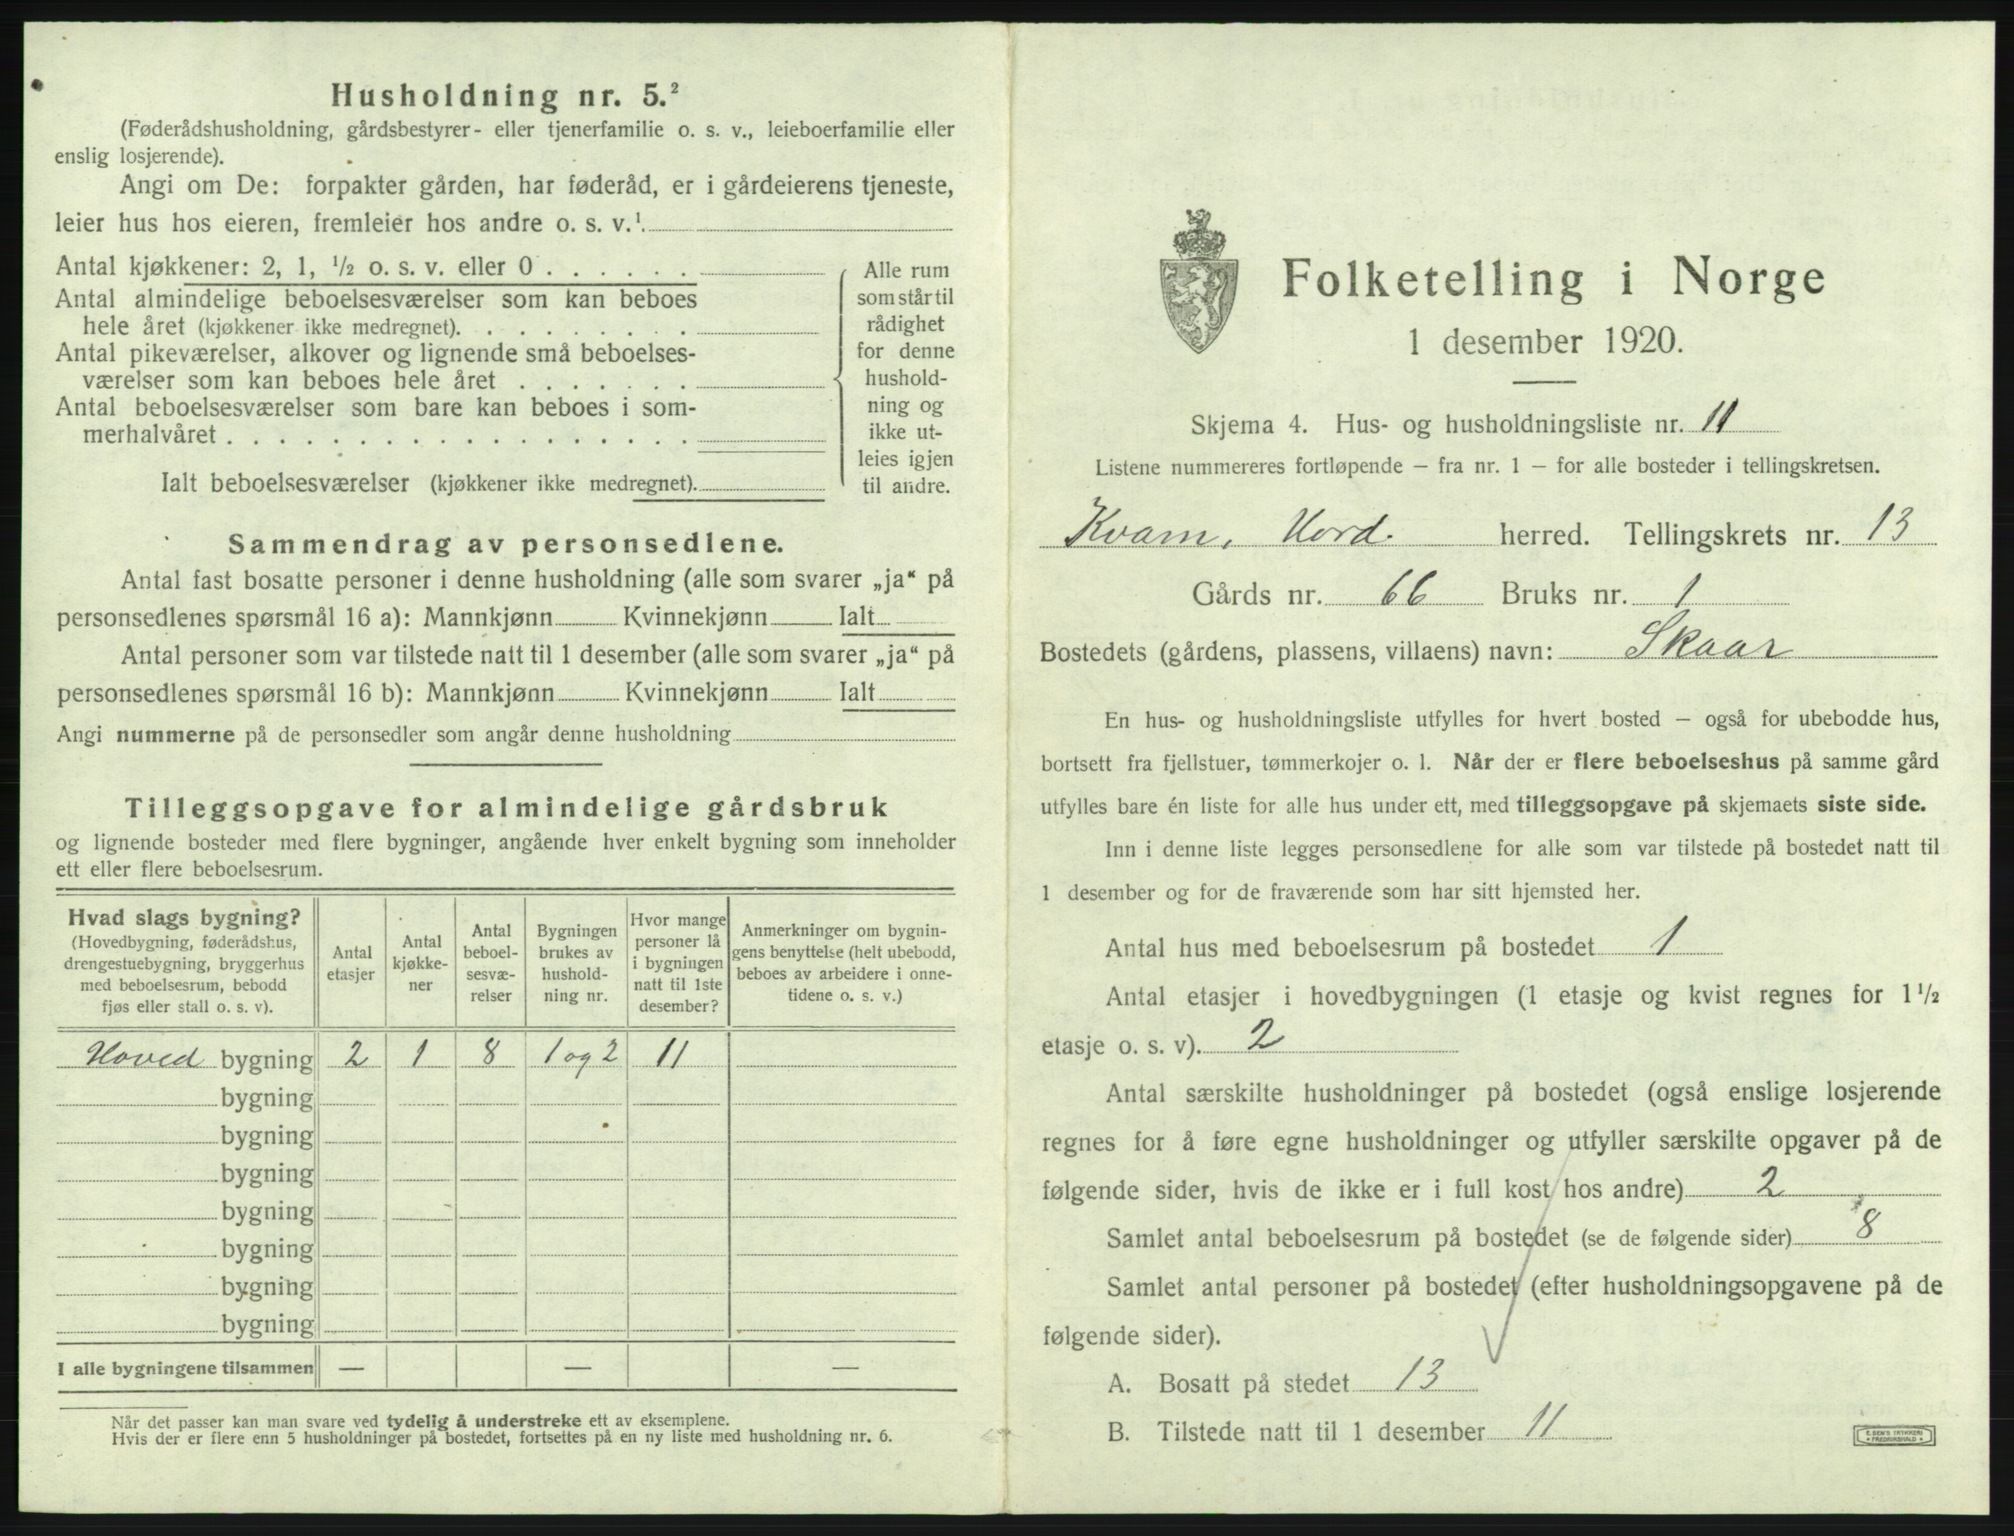 Husholdning nr. 5.²
(Føderådshusholdning, gårdsbestyrer- eller tjenerfamilie o. s. v., leieboerfamilie eller
enslig losjerende).
Angi om De: forpakter gården, har føderåd, er i gårdeierens tjeneste,
leier hus hos eieren, fremleier hos andre o. s. v.¹.
Antal kjøkkener: 2, 1, ½ o. s. v. eller 0 . . . . . .
Antal almindelige beboelsesværelser som kan beboes
hele året (kjøkkener ikke medregnet). . . . . . . . .
Antal pikeværelser, alkover og lignende små beboelses-
værelser som kan beboes hele året . . . . . . .
Antal beboelsesværelser som bare kan beboes i som-
merhalvåret . . . . . . . . . . . . . . . . . .
Ialt beboelsesværelser (kjøkkener ikke medregnet).
Alle rum
som står til
rådighet
for denne
hushold-
ning og
ikke ut-
leies igjen
til andre.
Sammendrag av personsedlene.
Antal fast bosatte personer i denne husholdning (alle som svarer „ja“ på
personsedlenes spørsmål 16 a): Mannkjønn Kvinnekjønn Ialt
Antal personer som var tilstede natt til 1 desember (alle som svarer „ja“ på
personsedlenes spørsmål 16 b): Mannkjønn Kvinnekjønn Ialt
Angi nummerne på de personsedler som angår denne husholdning
Tilleggsopgave for almindelige gårdsbruk
og lignende bosteder med flere bygninger, angående hver enkelt bygning som inneholder
ett eller flere beboelsesrum.
Hvad slags bygning?
(Hovedbygning, føderådshus,
drengestuebygning, bryggerhus
med beboelsesrum, bebodd
fjøs eller stall o. s. v).
Antal
etasjer
Antal
kjøkke-
ner
Antal
beboel-
sesvæ-
relser
Bygningen
brukes av
hushold-
ning nr.
Hvor mange
personer lå
i bygningen
natt til 1ste
desember?
Anmerkninger om bygnin-
gens benyttelse (helt ubebodd,
beboes av arbeidere i onne-
tidene o. s. v.)
Hoved bygning 2 1 8 1 og 2 11
bygning
bygning
bygning
bygning
bygning
bygning
bygning
I alle bygningene tilsammen — — —
Når det passer kan man svare ved tydelig å understreke ett av eksemplene.
Hvis der er flere enn 5 husholdninger på bostedet, fortsettes på en ny liste med husholdning nr. 6.
Folketelling i Norge
1 desember 1920.
Skjema 4. Hus- og husholdningsliste nr. 11
Listene nummereres fortløpende – fra nr. 1 – for alle bosteder i tellingskretsen.
Kvam, Hord. herred. Tellingskrets nr. 13
Gårds nr. 66 Bruks nr. 1
Bostedets (gårdens, plassens, villaens) navn: Skaar
En hus- og husholdningsliste utfylles for hvert bosted – også for ubebodde hus,
bortsett fra fjellstuer, tømmerkojer o. l. Når der er flere beboelseshus på samme gård
utfylles bare én liste for alle hus under ett, med tilleggsopgave på skjemaets siste side.
Inn i denne liste legges personsedlene for alle som var tilstede på bostedet natt til
1 desember og for de fraværende som har sitt hjemsted her.
Antal hus med beboelsesrum på bostedet 1
Antal etasjer i hovedbygningen (1 etasje og kvist regnes for 1½
etasje o. s. v). 2
Antal særskilte husholdninger på bostedet (også enslige losjerende
regnes for å føre egne husholdninger og utfyller særskilte opgaver på de
følgende sider, hvis de ikke er i full kost hos andre) 2
Samlet antal beboelsesrum på bostedet (se de følgende sider) 8
Samlet antal personer på bostedet (efter husholdningsopgavene på de
følgende sider).
A. Bosatt på stedet 13
B. Tilstede natt til 1 desember 11